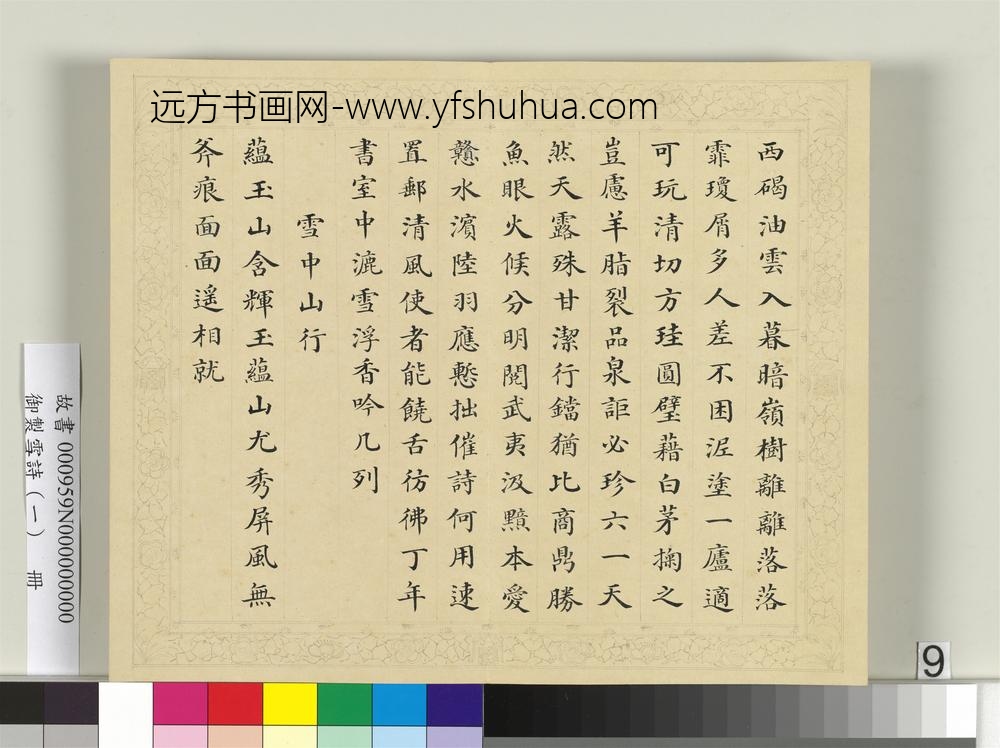 远方书画网-www.yfshuhua.com
西碣油雲入暮暗嶺樹離離落落
霏瓊屑多人差不困泥塗一廬適
可玩清切方珪圓璧藉白茅掬之
豈慮羊脂裂品泉詎必珍六一天
然天露殊甘潔行鐺猶比商鼎勝
魚眼火候分明閱武夷汲黯本愛
戇水濱陸羽應慙拙催詩何用速
置郵清風使者能饒舌彷彿丁年
書室中漉雪浮香吟几列
雪中山行
蘊玉山含輝玉蘊山尤秀屏風無
斧痕面面遥相就
故書 000959N000000000
御製雪詩(一) 冊
9